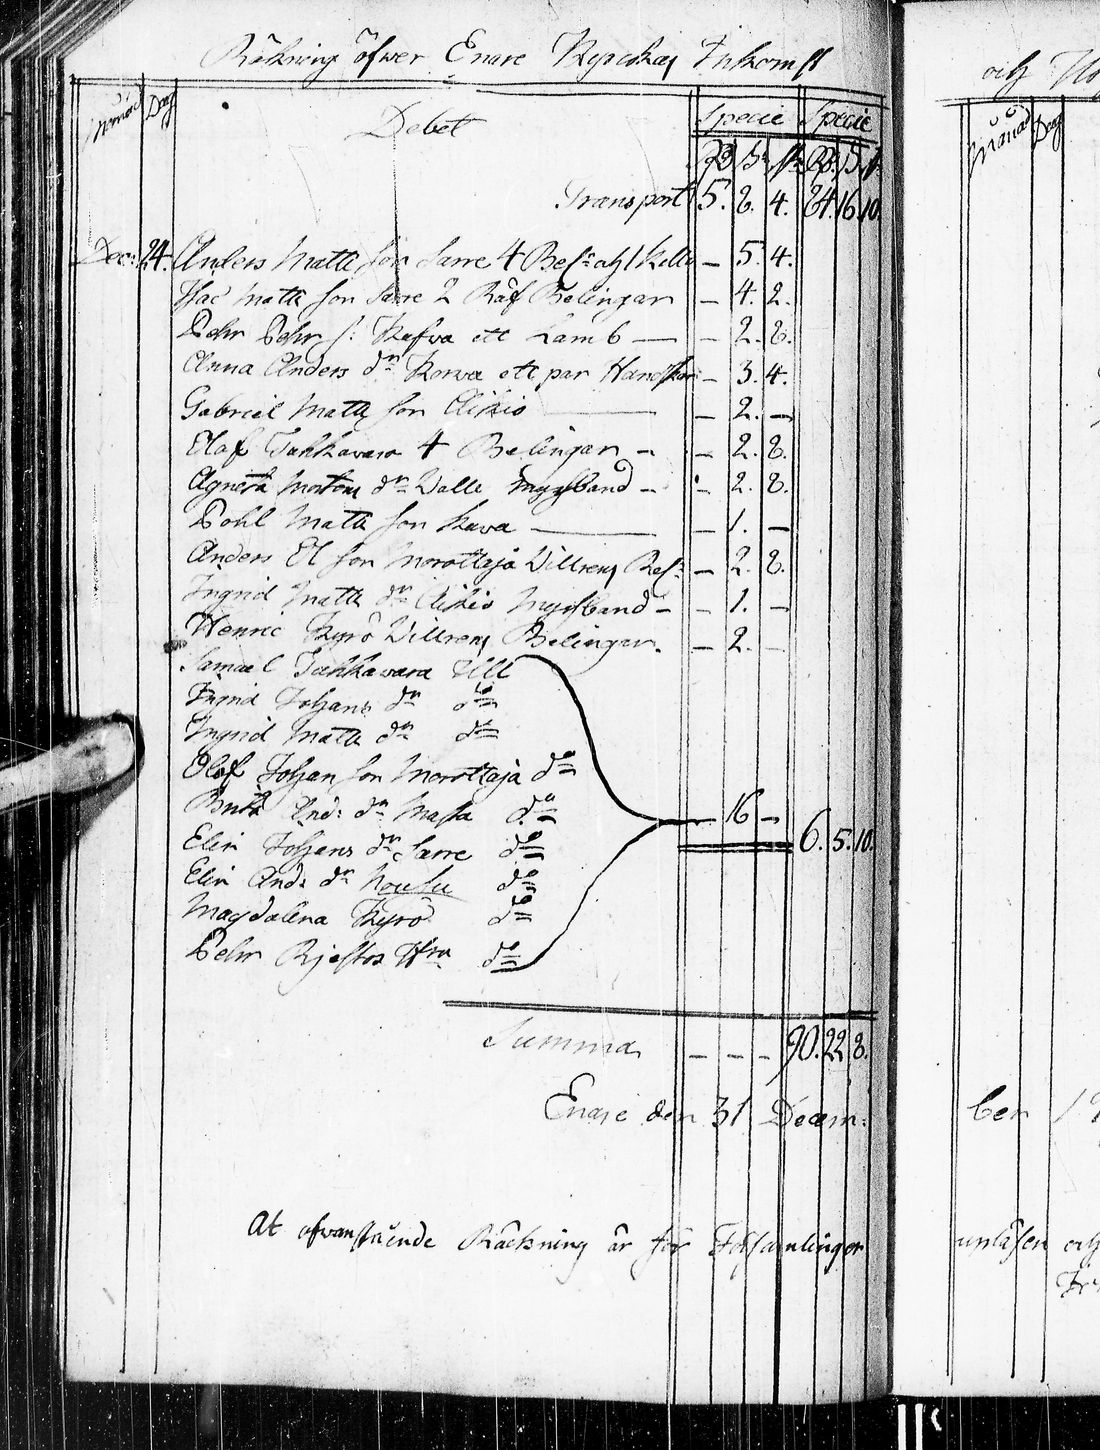 Räkning öfwer Enare Kyrckas Inkomst
Månad Dag Debet Specie Specie
Rd s. r. Rd. s. r.
Transport 5. 8. 4. 84. 16. 10.
Dec: 24. Anders Matts son Sarre 4 Bel:r och 1 – 5. 4.
Isac Matts son Sarre 2 Räf Belingar – 4. 2.
Pehr Pehr s: Kafwa ett Lamb – – 2. 8.
Anna Anders d:r Korwa ett par Handskar – 3. 4.
Gabriel Matts son Aikio – 2. –
Olof Sakkawara 4 Belingar – – 2. 8.
Agneta d:r Walle Myssband – – 2. 8.
Pohl Matts son Kuwa – – 1. –
Anders Ol son Morottaja Willrens Bel:r – 2. 8.
Ingrid Matts d:r Aikio Myssband – – 1. –
Henric Kyrö Willrens Belingar. – 2. –
Samuel Sakkawara Ull
Ingrid Johans d:r d:o
Ingrid Matts d:r d:o
Olof Johan son Morottaja d:o
And: d:r d:o – 16 –
Elin Johans d:r Sarre d:o 6. 5. 10.
Elin And: d:r d:o
Magdalena Kyrö d:o
Pehr d:o
Summa – – – 90. 22 8.
Enare den 31 Decem:
At ofwanstående Räckning är för Församlingen
och
Månad Dag
ber
upläsen och